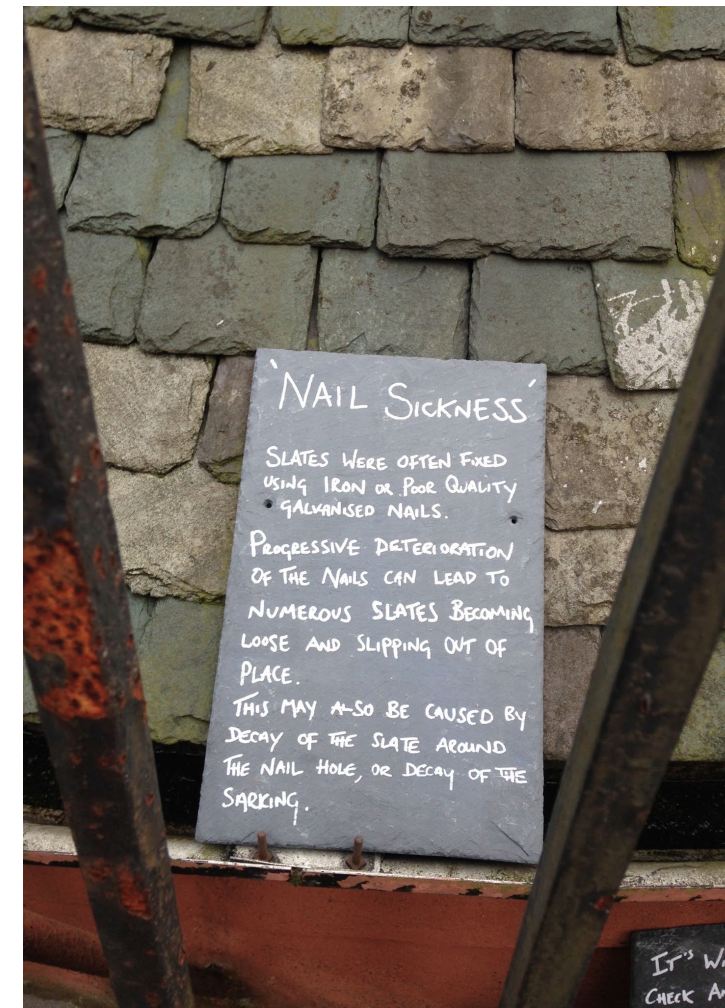 'NAIL SICKNESS'
SLATES WERE OFTEN FIXED
USING IRON OR POOR QUALITY
GALVANISED NAILS.
PROGRESSIVE DETERIORATION
OF THE NAILS CAN LEAD TO
NUMEROUS SLATES BECOMING
LOOSE AND SLIPPING OUT OF
PLACE.
THIS MAY ALSO BE CAUSED BY
DECAY OF THE SLATE AROUND
THE NAIL HOLE, OR DECAY OF THE
SARKING.
IT'S
CHECK